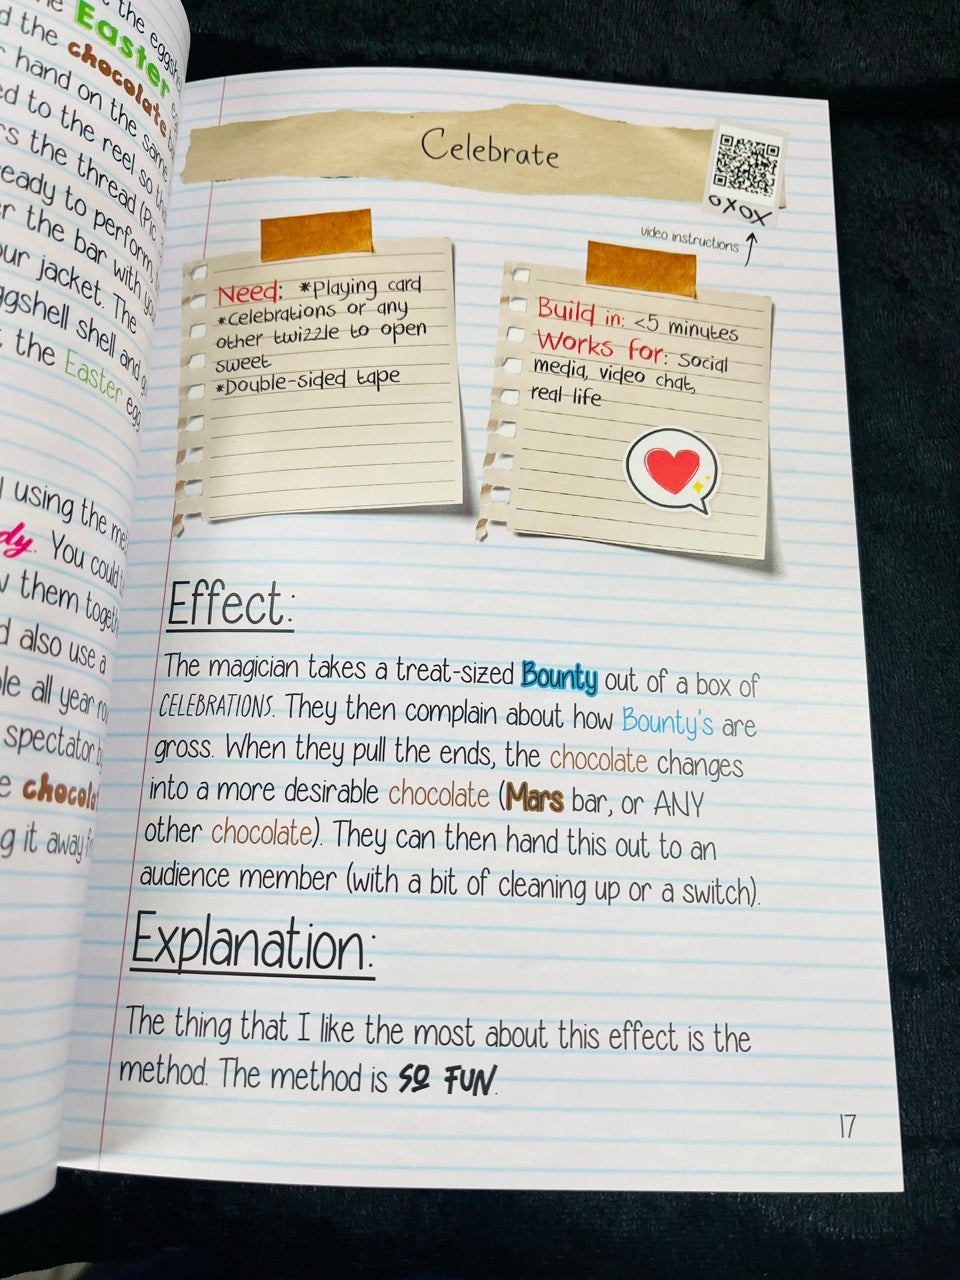 the eggsh
Easter
d the chocolate
hand on the same
ed to the reel so the
rs the thread (Pic.
eady to perform,
er the bar with you
our jacket. The
ggshell shell and g
the Easter egg
using the me
dy. You could
them togeth
d also use a
le all year ro
spectator
e chocola
g it away
Celebrate
OXOX
video instructions
Need: *Playing card
*Celebrations or any
other twizzle to open
sweet
*Double-sided tape
Build in: <5 minutes
Works for: Social
media, video chat,
real life
Effect:
The magician takes a treat-sized Bounty out of a box of
CELEBRATIONS. They then complain about how Bounty's are
gross. When they pull the ends, the chocolate changes
into a more desirable chocolate (Mars bar, or ANY
other chocolate). They can then hand this out to an
audience member (with a bit of cleaning up or a switch).
Explanation:
The thing that I like the most about this effect is the
method. The method is SO FUN.
17